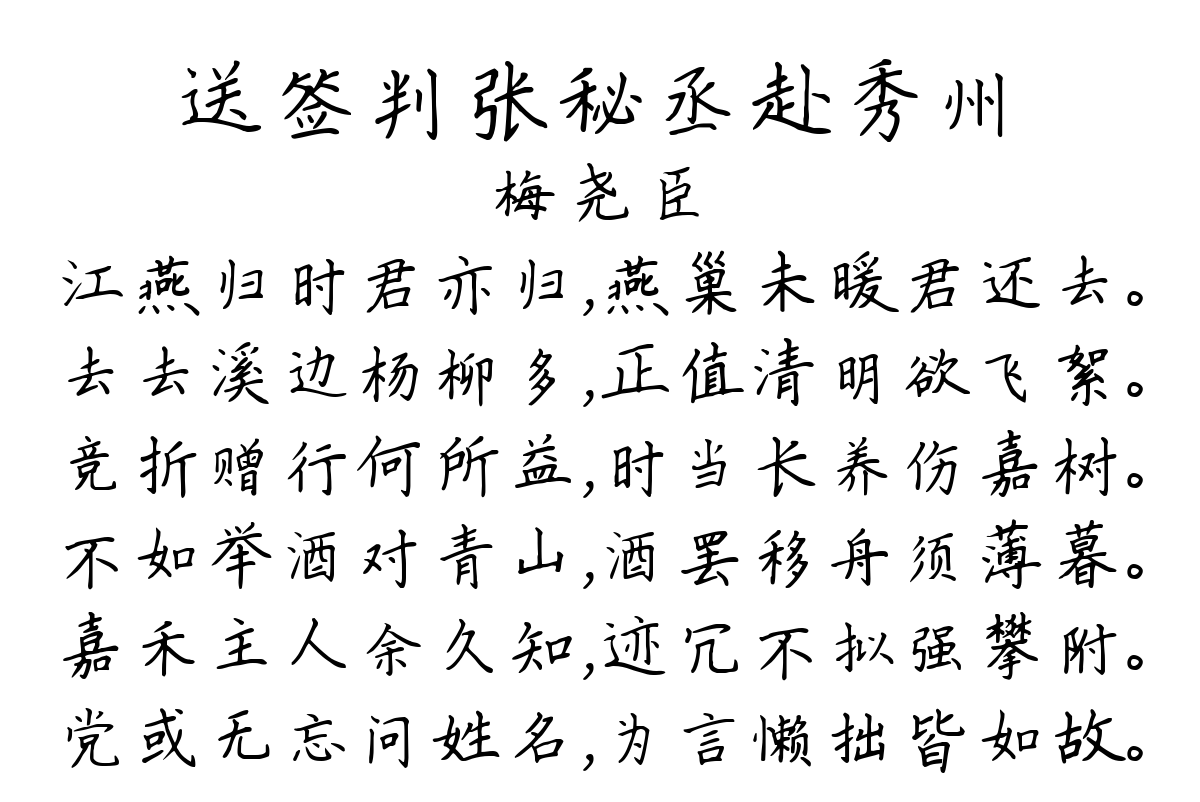 送签判张秘丞赴秀州
梅尧臣
江燕归时君亦归,燕巢未暖君还去。
去去溪边杨柳多,正值清明欲飞絮。
竞折赠行何所益,时当长养伤嘉树。
不如举酒对青山,酒罢移舟须薄暮。
嘉禾主人余久知,迹冗不拟强攀附。
党或无忘问姓名,为言懒拙皆如故。